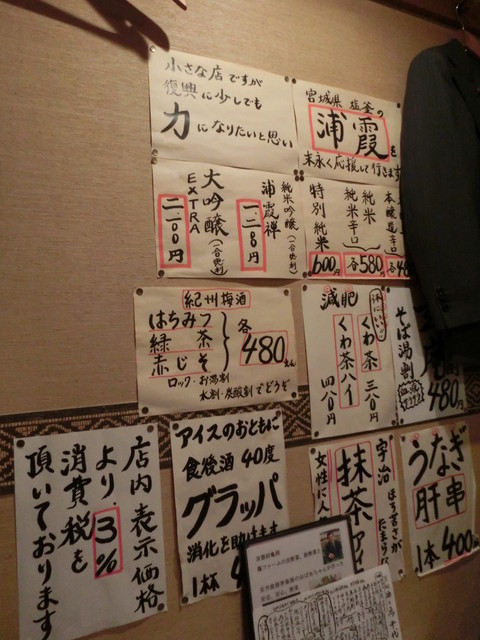 小さな店ですが
復興に少しでも
力になりたいと思い
宮城県 塩釜の
浦霞を
末永く応援して行きます
純米吟醸(一合共割)
浦霞禅
一二八〇円
大吟醸(一合共割)
EXTRA
二一〇〇円
本醸造辛口
純米辛口
純米
各580円
特別純米
600円
紀州梅酒
はちみつ
緑茶
赤じそ
各480えん
ロック・お湯割
水割・炭酸割でどうぞ
減肥
体にいい
くわ茶 三八〇円
くわ茶ハイ 四八〇円
そば湯割
480円
店内表示価格
より3%
消費税を
頂いております
アイスのおともに
食後酒40度
グラッパ
消化を助けます
1杯
宇治
ほろ苦さが
たまらな
抹茶アイ
女性に人
うなぎ
肝串
1本400